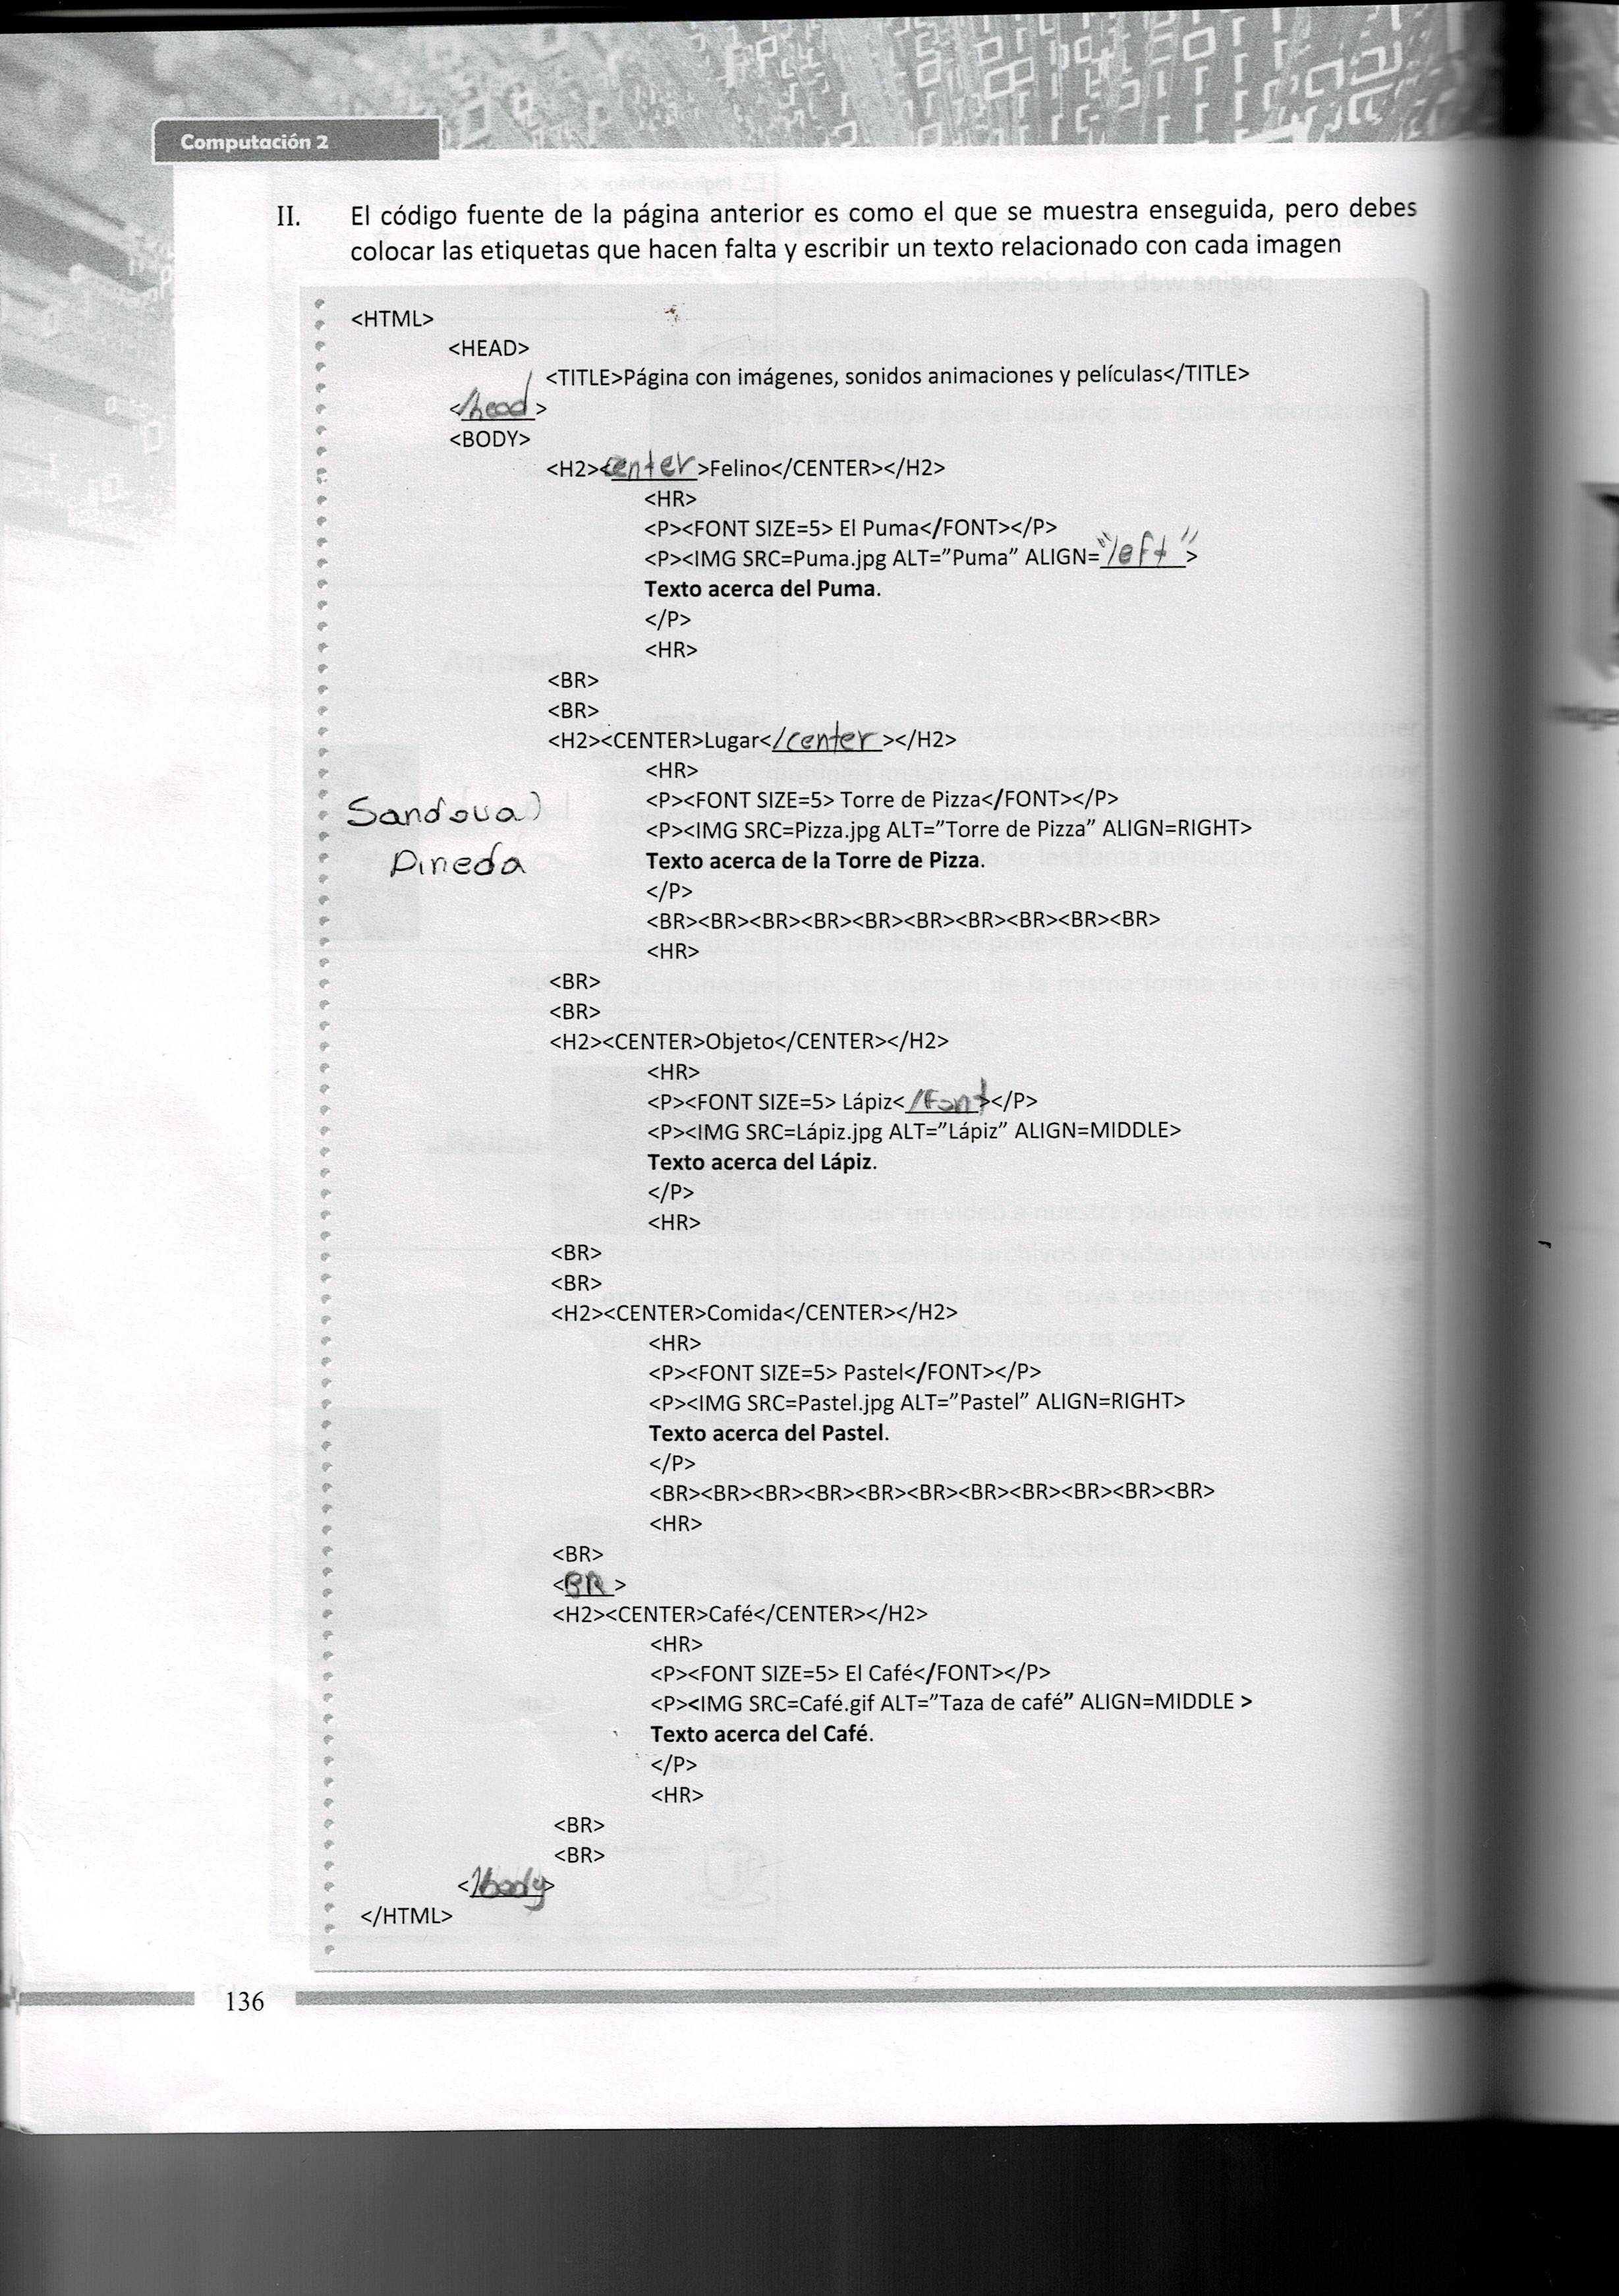 Computación 2
II. El código fuente de la página anterior es como el que se muestra enseguida, pero debes
colocar las etiquetas que hacen falta y escribir un texto relacionado con cada imagen
<HTML>
<HEAD>
<TITLE>Página con imágenes, sonidos animaciones y películas</TITLE>
</head>
<BODY>
<H2><center>Felino</CENTER></H2>
<HR>
<P><FONT SIZE=5> El Puma</FONT></P>
<P><IMG SRC=Puma.jpg ALT="Puma" ALIGN="left">
Texto acerca del Puma.
</P>
<HR>
<BR>
<BR>
<H2><CENTER>Lugar</center></H2>
<HR>
<P><FONT SIZE=5> Torre de Pizza</FONT></P>
<P><IMG SRC=Pizza.jpg ALT="Torre de Pizza" ALIGN=RIGHT>
Texto acerca de la Torre de Pizza.
</P>
<BR><BR><BR><BR><BR><BR><BR><BR><BR><BR>
<HR>
Sandoval
Pineda
<BR>
<BR>
<H2><CENTER>Objeto</CENTER></H2>
<HR>
<P><FONT SIZE=5> Lápiz</Font></P>
<P><IMG SRC=Lápiz.jpg ALT="Lápiz" ALIGN=MIDDLE>
Texto acerca del Lápiz.
</P>
<HR>
<BR>
<BR>
<H2><CENTER>Comida</CENTER></H2>
<HR>
<P><FONT SIZE=5> Pastel</FONT></P>
<P><IMG SRC=Pastel.jpg ALT="Pastel" ALIGN=RIGHT>
Texto acerca del Pastel.
</P>
<BR><BR><BR><BR><BR><BR><BR><BR><BR><BR><BR>
<HR>
<BR>
<BR>
<H2><CENTER>Café</CENTER></H2>
<HR>
<P><FONT SIZE=5> El Café</FONT></P>
<P><IMG SRC=Café.gif ALT="Taza de café" ALIGN=MIDDLE >
Texto acerca del Café.
</P>
<HR>
<BR>
<BR>
</body>
</HTML>
136